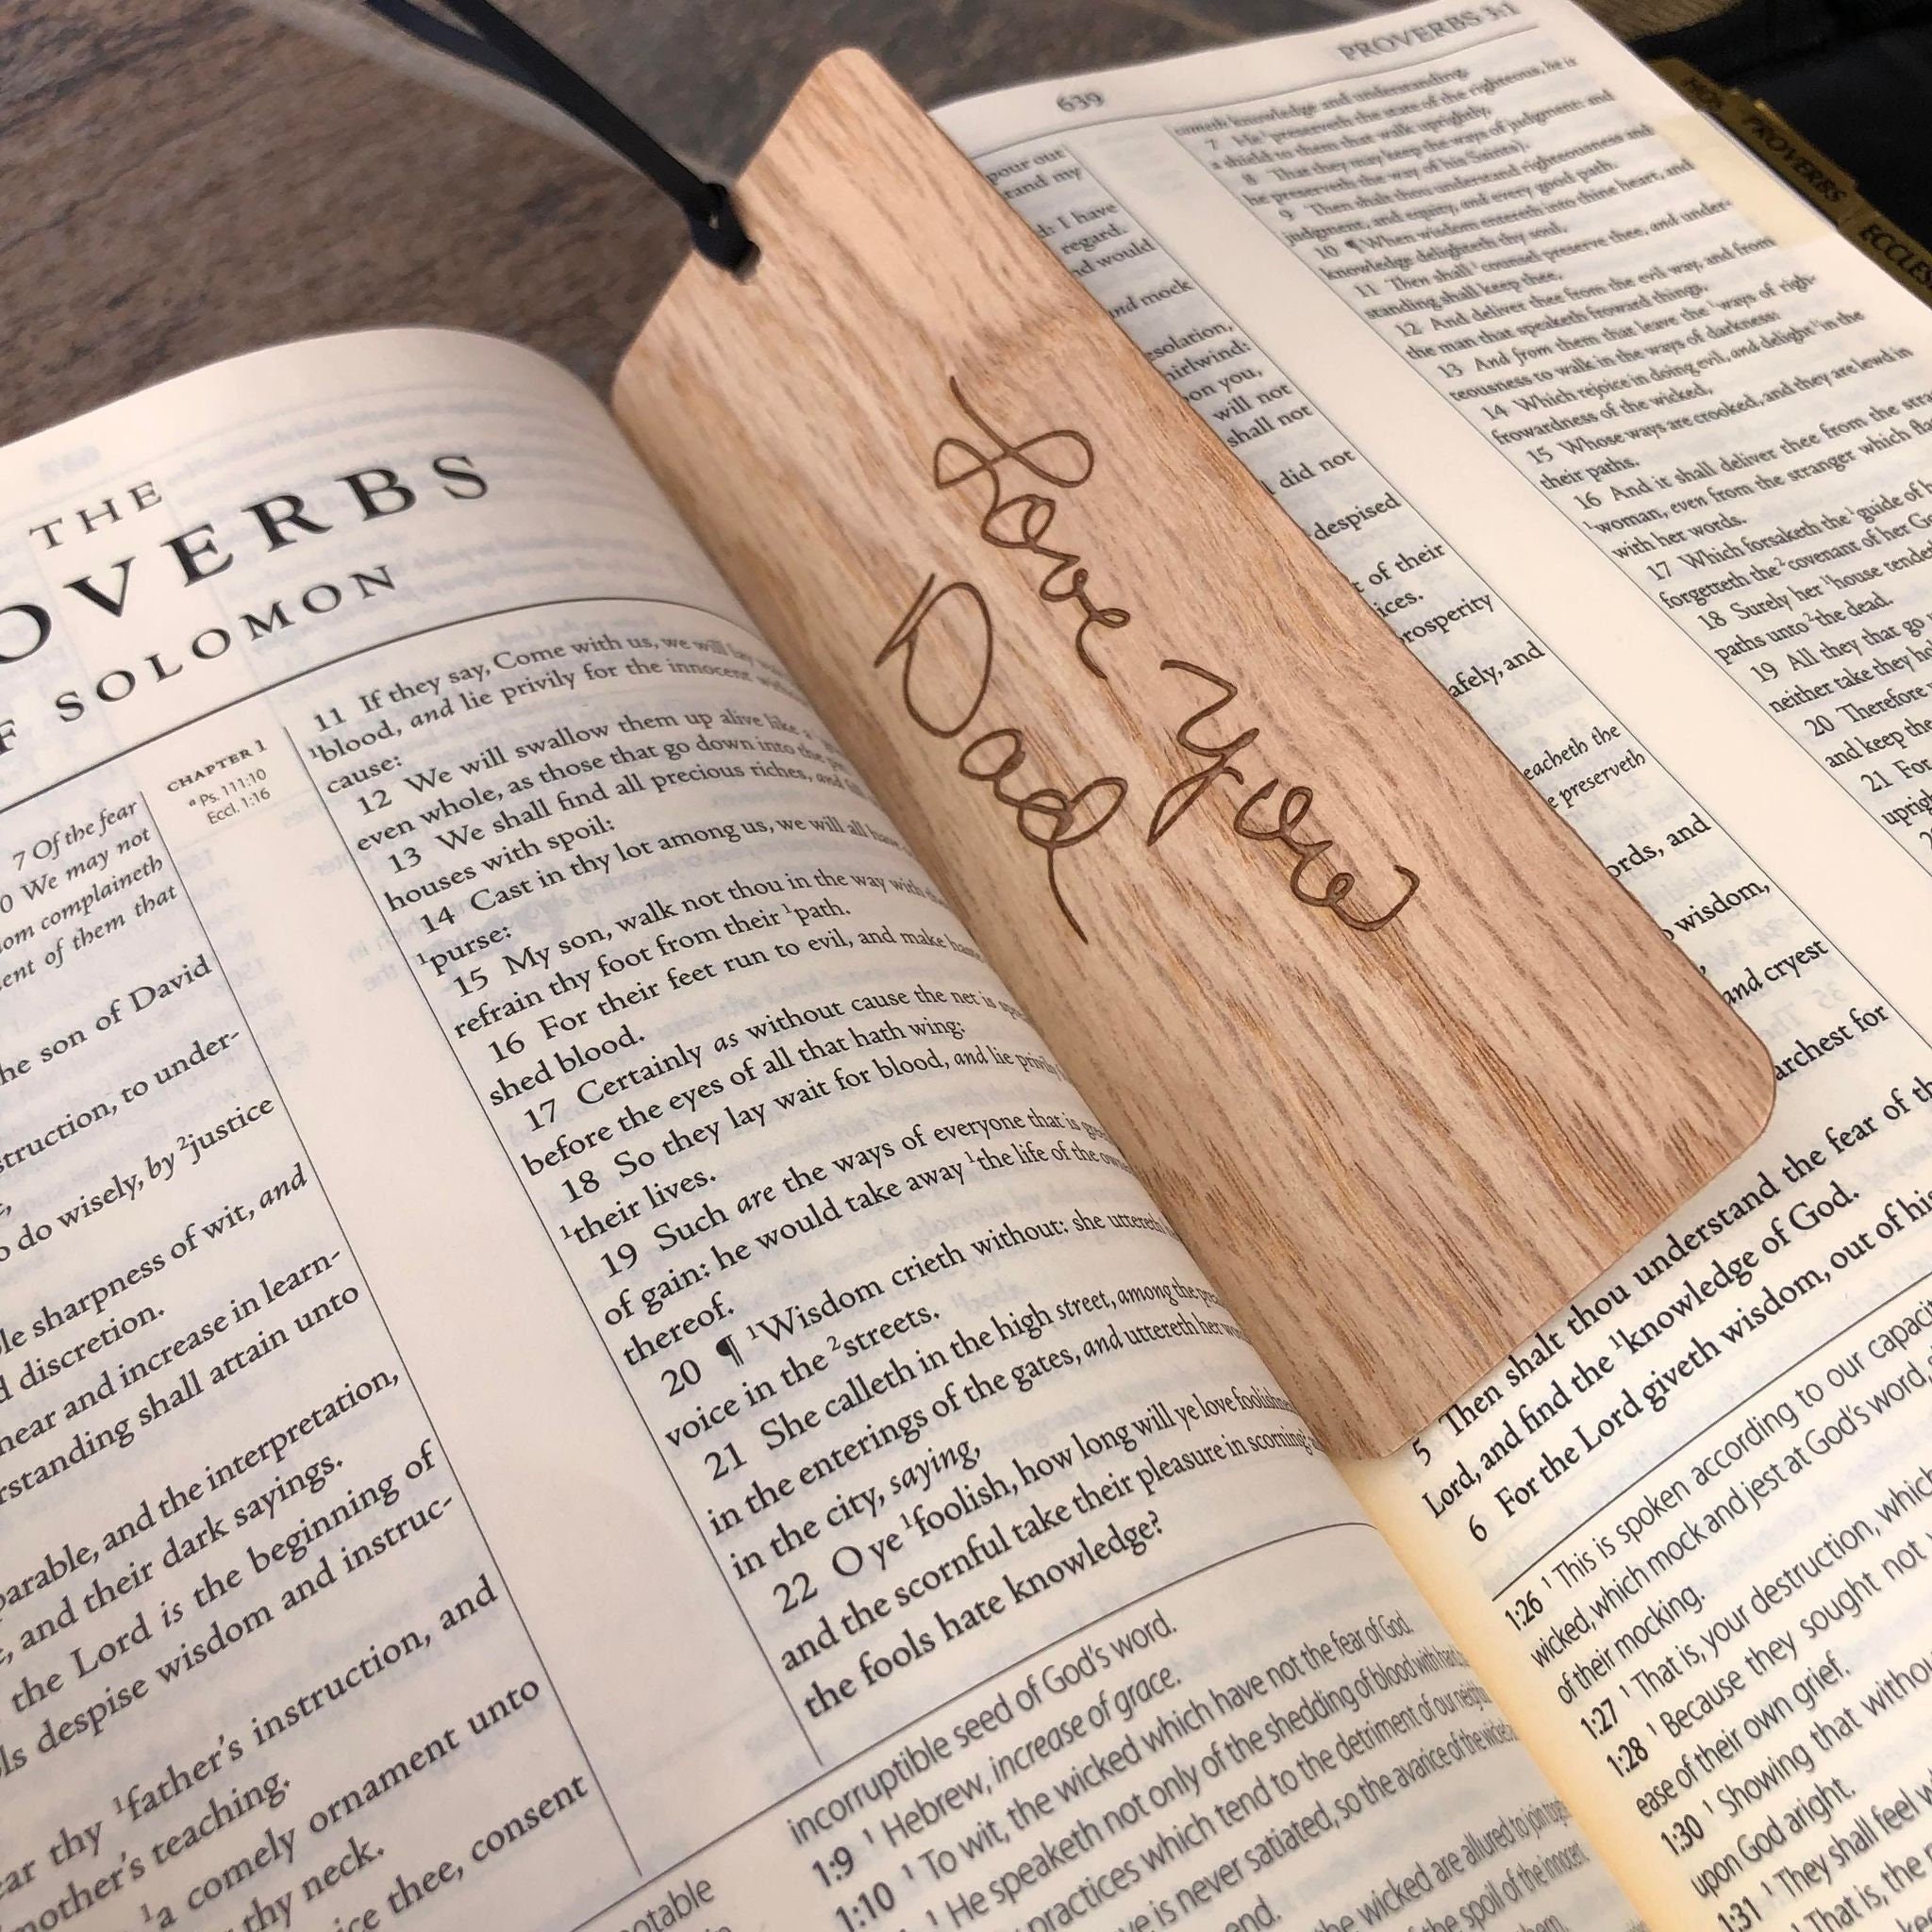 THE
OF SOLOMON
CHAPTER 1
a Ps. 111:10
Eccl. 1:16
7 Of the fear
We may not
complaineth
of them that
the son of David
to under-
do wisely, by 2justice
sharpness of wit, and
discretion.
and increase in learn-
shall attain unto
parable, and the interpretation,
and their dark sayings.
the Lord is the beginning of
despise wisdom and instruc-
thy 1father's instruction, and
mother's teaching.
1a comely ornament unto
thy neck.
thee, consent
11 If they say, Come with us, we will lay
1blood, and lie privily for the innocent
cause:
12 We will swallow them up alive like a
even whole, as those that go down into the
13 We shall find all precious riches, and
houses with spoil:
14 Cast in thy lot among us, we will all have
1purse:
15 My son, walk not thou in the way with
refrain thy foot from their 1path.
16 For their feet run to evil, and make
shed blood.
17 Certainly as without cause the net is
before the eyes of all that hath wing:
18 So they lay wait for blood, and lie privily
1their lives.
19 Such are the ways of everyone that is
of gain: he would take away 1the life of the
thereof.
20 ¶ 1Wisdom crieth without: she uttereth
voice in the 2streets.
21 She calleth in the high street, among the
in the enterings of the gates, and uttereth her
in the city, saying,
22 O ye 1foolish, how long will ye love
and the scornful take their pleasure in scorning
the fools hate knowledge?
incorruptible seed of God's word.
1:9 1 Hebrew, increase of grace.
1:10 1 To wit, the wicked which have not the fear of God.
1 He speaketh not only of the shedding of blood with
practices which tend to the detriment of our
is never satiated, so the avarice of the
the wicked are allured to join
the spoil of the innocent
Love You
Dad
639
PROVERBS 3:1
pour out
and my
I have
regard.
would
and mock
will not
shall not
did not
despised
of their
prosperity
and
the
preserveth
and
wisdom,
and cryest
for
5 Then shalt thou understand the fear of
Lord, and find the 1knowledge of God.
6 For the Lord giveth wisdom, out of
cometh knowledge and understanding.
7 He 1preserveth the state of the righteous, he is
a shield to them that walk uprightly,
8 That they may keep the ways of judgment: and
he preserveth the way of his Saints).
9 Then shalt thou understand righteousness and
judgment, and equity, and every good path.
10 ¶ When wisdom entereth into thine heart, and
knowledge delighteth thy soul,
11 Then shall 1counsel preserve thee, and under-
standing shall keep thee,
12 And deliver thee from the evil way, and from
the man that speaketh froward things,
13 And from them that leave the 1ways of righ-
teousness to walk in the ways of darkness:
14 Which rejoice in doing evil, and delight 1in the
frowardness of the wicked,
15 Whose ways are crooked, and they are lewd in
their paths.
16 And it shall deliver thee from the
1woman, even from the stranger which
with her words.
17 Which forsaketh the 1guide of
forgetteth the 2covenant of her
18 Surely her 1house
paths unto 2the dead.
19 All they that go
neither take they
20 Therefore
and keep the
21 For
1:26 1 This is spoken according to our
wicked, which mock and jest at God's word,
of their mocking.
1:27 1 That is, your destruction, which
1:28 1 Because they sought not
ease of their own grief.
1:30 1 Showing that
upon God aright.
1:31 1 They shall feel
That is, the
PROVERBS